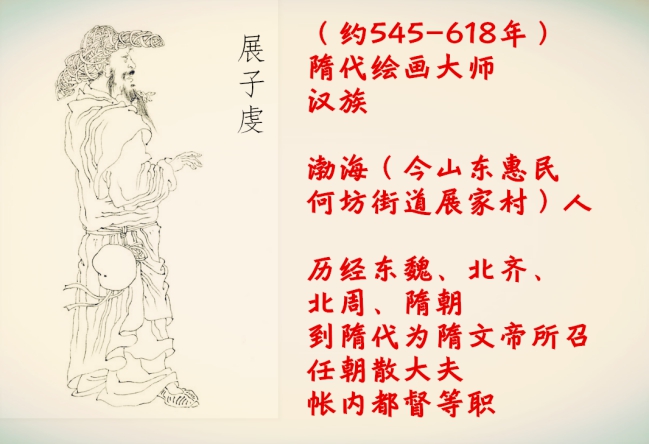 展子虔
（约545-618年）
隋代绘画大师
汉族
渤海（今山东惠民
何坊街道展家村）人
历经东魏、北齐、
北周、隋朝
到隋代为隋文帝所召
任朝散大夫
帐内都督等职